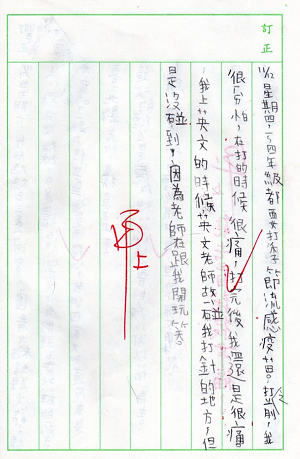 訂正
11/12星期四,一~四年級都要打季節流感疫苗。打之前,我
很怕,在打的時候很痛,打完後我還是很痛
。我上英文的時候英文老師故碰我打針的地方,但
是沒碰到,因為老師在跟我開玩笑。
甲上
訂正